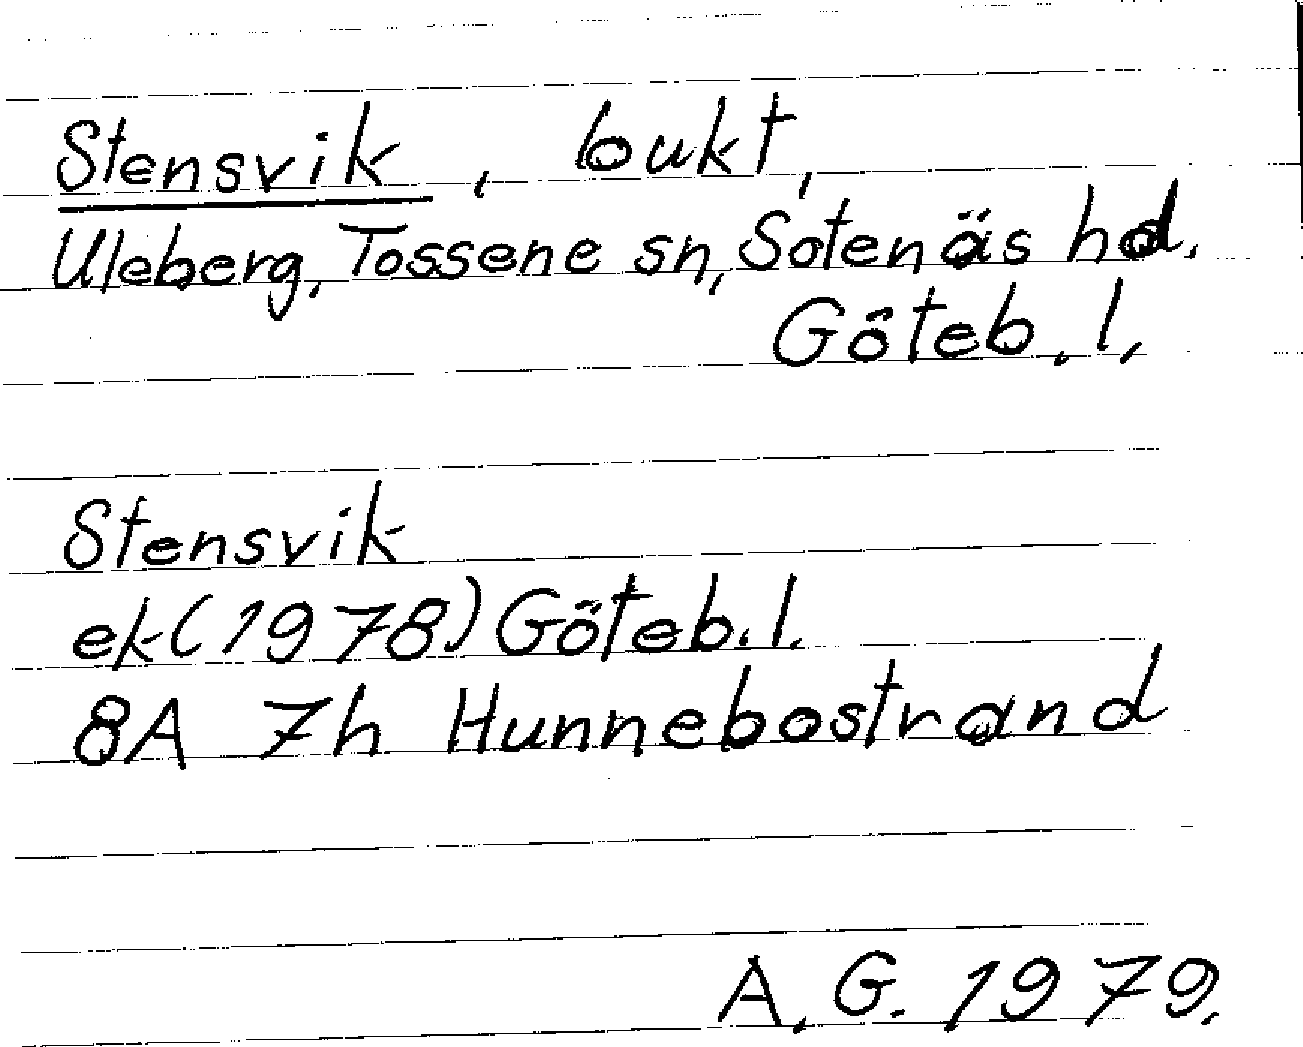 Stensvik, bukt,
Uleberg, Tossene sn, Sotenäs hd.
Göteb. l.
Stensvik
ek (1978) Göteb. l.
8A 7h Hunnebostrand
A. G. 1979.